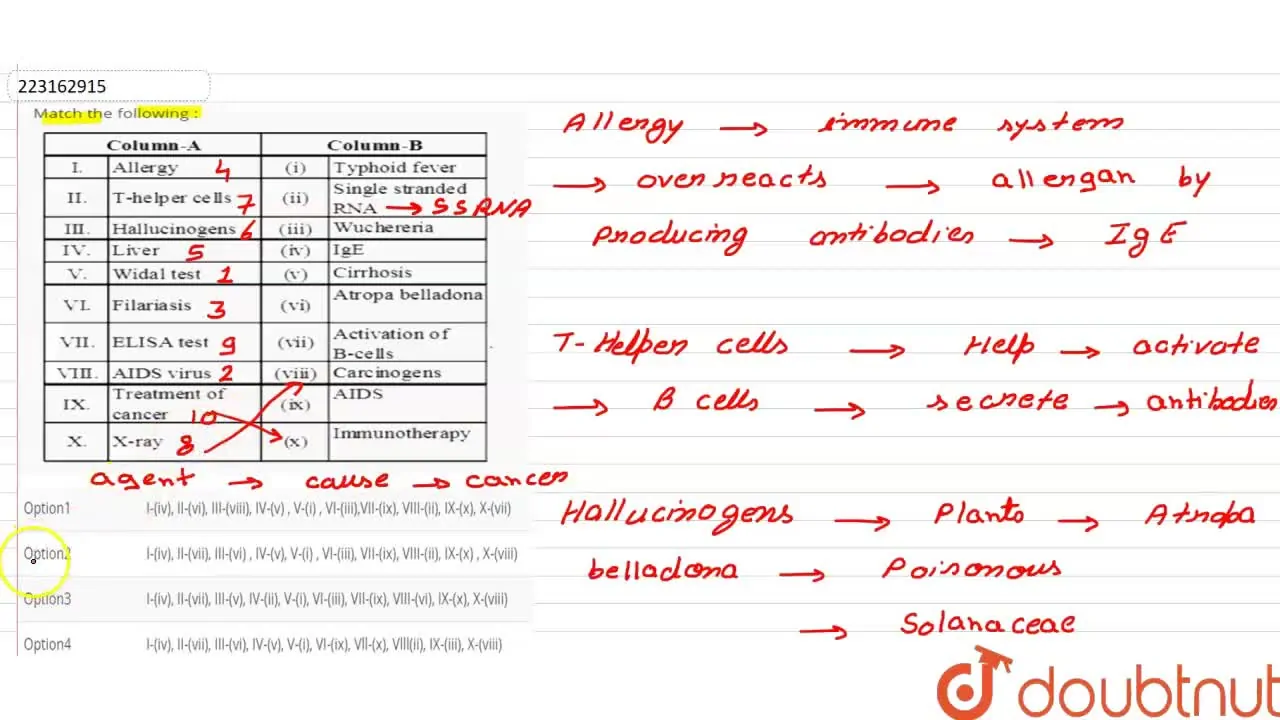 223162915
Match the following :
Column-A Column-B
I. Allergy 4 (i) Typhoid fever
II. T-helper cells 7 (ii) Single stranded RNA → SSRNA
III. Hallucinogens 6 (iii) Wuchereria
IV. Liver 5 (iv) IgE
V. Widal test 1 (v) Cirrhosis
VI. Filariasis 3 (vi) Atropa belladona
VII. ELISA test 9 (vii) Activation of B-cells
VIII. AIDS virus 2 (viii) Carcinogens
IX. Treatment of cancer 10 (ix) AIDS
X. X-ray 8 (x) Immunotherapy
agent → cause → cancer
Option1 I-(iv), II-(vi), III-(viii), IV-(v) , V-(i) , VI-(iii),VII-(ix), VIII-(ii), IX-(x), X-(vii)
Option2 I-(iv), II-(vii), III-(vi) , IV-(v), V-(i) , VI-(iii), VII-(ix), VIII-(ii), IX-(x) , X-(viii)
Option3 I-(iv), II-(vii), III-(v), IV-(ii), V-(i), VI-(iii), VII-(ix), VIII-(vi), IX-(x), X-(viii)
Option4 I-(iv), II-(vii), III-(vi), IV-(v), V-(i), VI-(ix), VII-(x), VIII(ii), IX-(iii), X-(viii)
Allergy → immune system
→ over reacts → allergan by
producing antibodies → IgE
T-Helper cells → Help → activate
→ B cells → secrete → antibodies
Hallucinogens → Plants → Atropa
belladona → Poisonous
→ Solanaceae
doubtnut